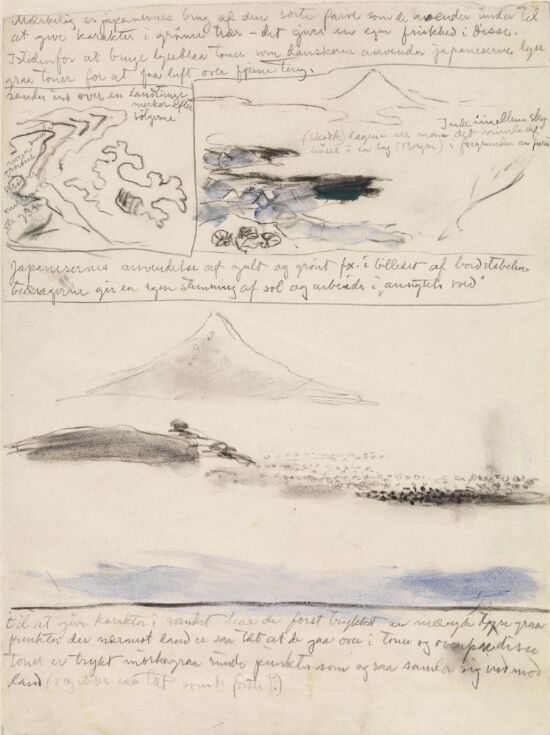 Mærkelig er japanernes brug af den sorte farve som de anvender under til
at give karakter i grønne træer – det giver en egen friskhed i disse.
Istedenfor at bruge lyseblaa toner som danskerne anvender japaneserne lyse
graa toner for at faa luft over fjerne ting.
sander ind over en landtunge
mærker efter
bølgerne
Inde imellem sky
(skodde) lagene ser man det vrimle af
huset i en by (Bergen) i forgrunden en
Japanesernes anvendelse af gult og grønt fx. i billedet af
gir en egen stemning af sol og arbeide i "ansigtets sved"
til at give karakter i vandet har de først trykket en mængde lyse graa
punkter der nærmest land er saa tæt at de gaa over i toner og ovenpaa disse
toner er trykt mørkegraa runde punkter som og saa samle sig ind mod
land (og bliver saa tæt som de første?)